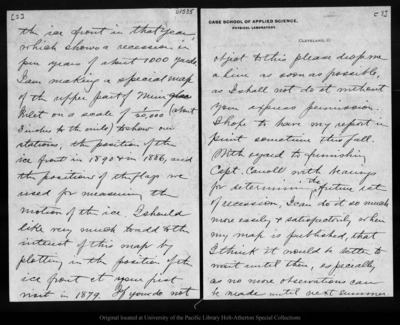 [2]
01535
the ice front in that year,
which shows a recession in
four years of about 1000 yards.
I am making a special map
of the upper part of Muir
Inlet on a scale of 1/20,000 (about
3 inches to the mile) to show our
stations, the position of the
ice front in 1890 & in 1886, and
the positions of the flags we
used for measuring the
motion of the ice. I should
like very much to add to the
interest of this map by
plotting in the position of the
ice front at your first
visit in 1879. If you do not
CASE SCHOOL OF APPLIED SCIENCE,
PHYSICAL LABORATORY.
CLEVELAND, O.
[3]
object to this please drop me
a line as soon as possible,
as I shall not do it without
your express permission.
I hope to have my report in
print sometime this fall.
With regard to furnishing
Capt. Carroll with bearings
for determining the future rate
of recession, I can do it so much
more easily & satisfactorily when
my map is published, that
I think it would be better to
wait until then, especially,
as no more observations can
be made until next summer
Original located at University of the Pacific Library Holt-Atherton Special Collections